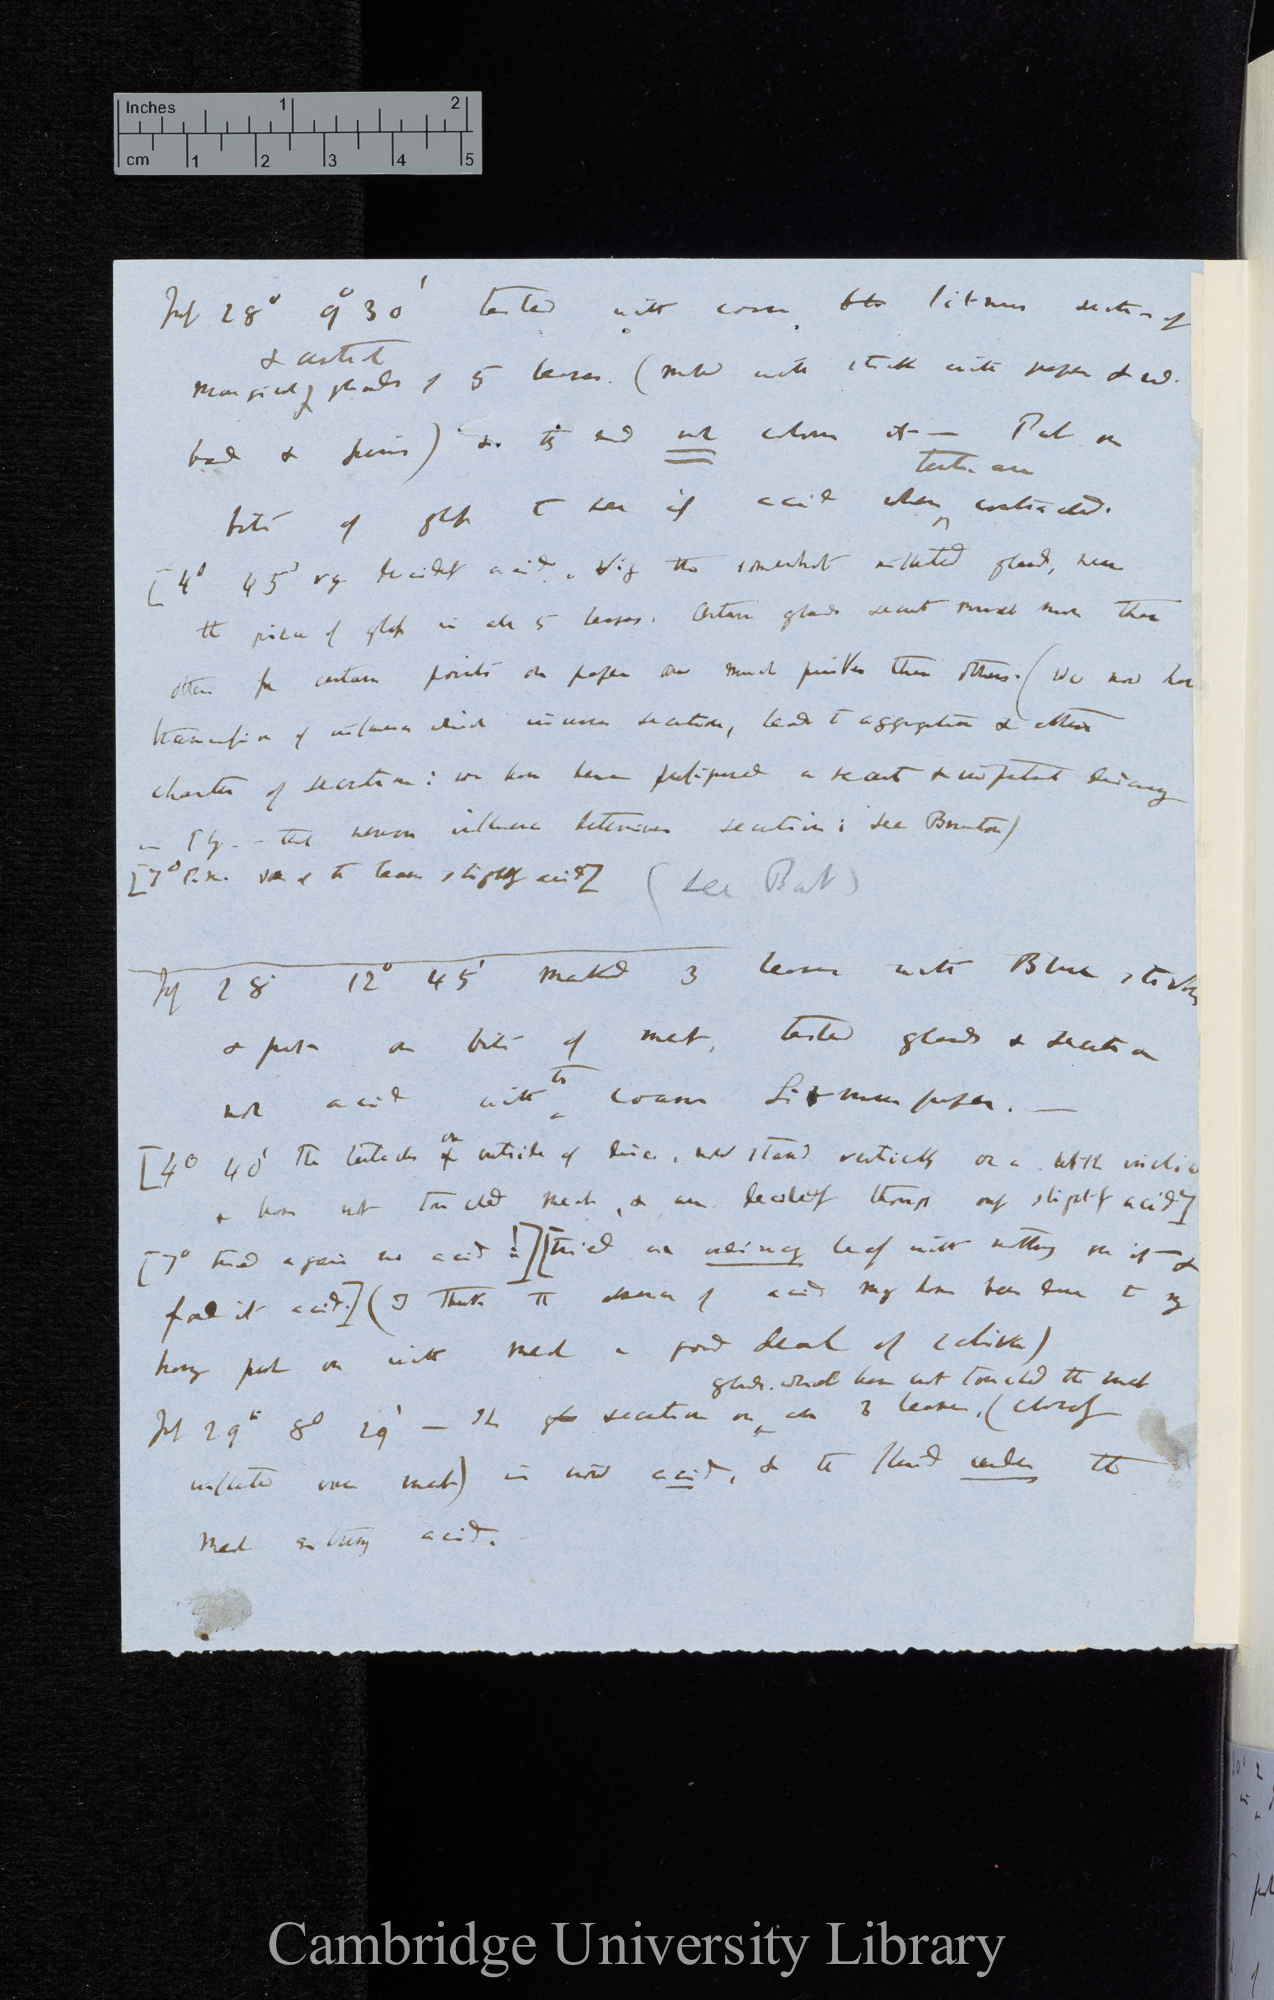 Inches 1 2
cm 1 2 3 4 5
July 28° 9° 30' tested with coarse litmus secretion of
& central
marginal glands of 5 leaves. (marked with stick with paper & red.
bead & pins) & it did not colour it — Put on
tentacles are
bits of glass to see if acid when contracted.
[4° 45' decidedly acid, viz the somewhat inflected glands, near
the pieces of glass in all 5 leaves. Certain glands secrete much more than
others for certain points on paper are much pinker than others. (We now have
transmission of influence which increases secretion, leads to aggregation & alters
character of secretion: we have here a & important discovery
— that nervous influence determines secretion; see Brunton)
[7° P.m. of the leaves slightly acid] (See Back)
July 28 12° 45' marked 3 leaves with Blue sticks
& put on bits of meat, tested glands & secretion
the
not acid with coarse Litmus paper. —
on
[4° 40' The tentacles outside of disc, now stand vertically or a little
& have not touched meat, & are decidedly though only slightly acid]
[7° tried again no acid !!] [tried an ordinary leaf with nothing on it — &
found it acid.] (I think the absence of acid may have been due to my
having put on with meat a good deal of saliva)
glands which have not touched the meat
July 29th 8° 29' — The secretion on all 3 leaves, (closely
inflected over meat) is now acid, & the fluid under the
meat extremely acid.
Cambridge University Library